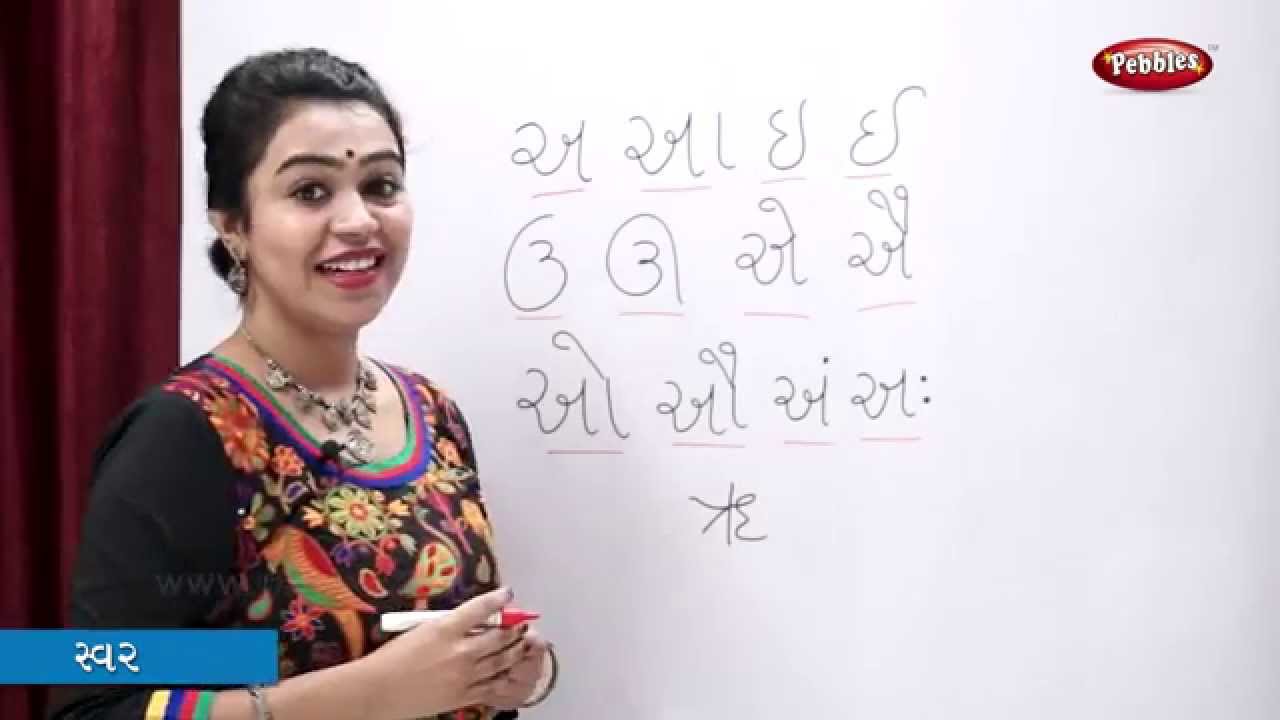 Pebbles™
અ આ ઇ ઈ
ઉ ઊ એ ઐ
ઓ ઔ અં અઃ
ઋ
www.
સ્વર